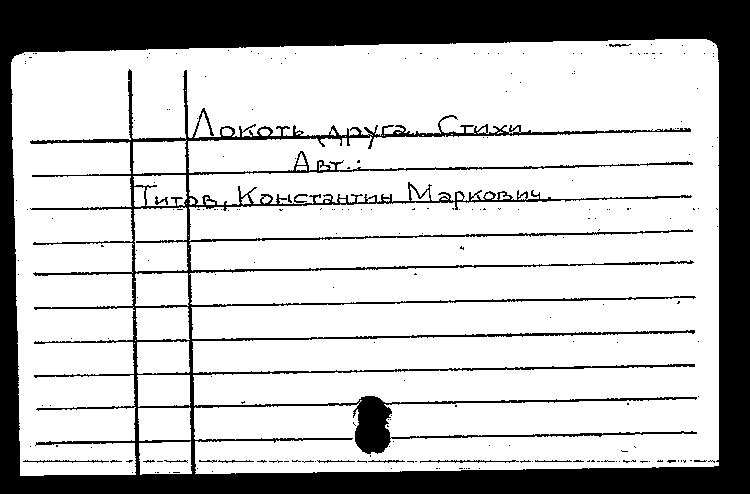 Локоть друга. Стихи.
Авт.:
Титов, Константин Маркович.